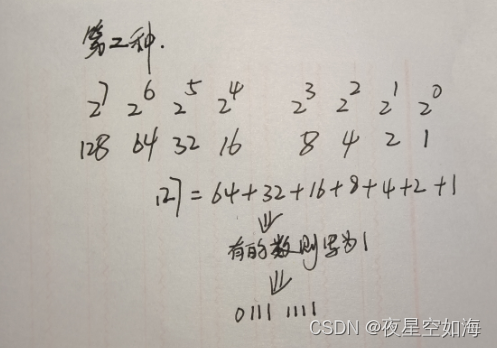 第二种.
2^7 2^6 2^5 2^4 2^3 2^2 2^1 2^0
128 64 32 16 8 4 2 1
127 = 64+32+16+8+4+2+1
⇓
有的数则写为1
⇓
0111 1111
CSDN @夜星空如海